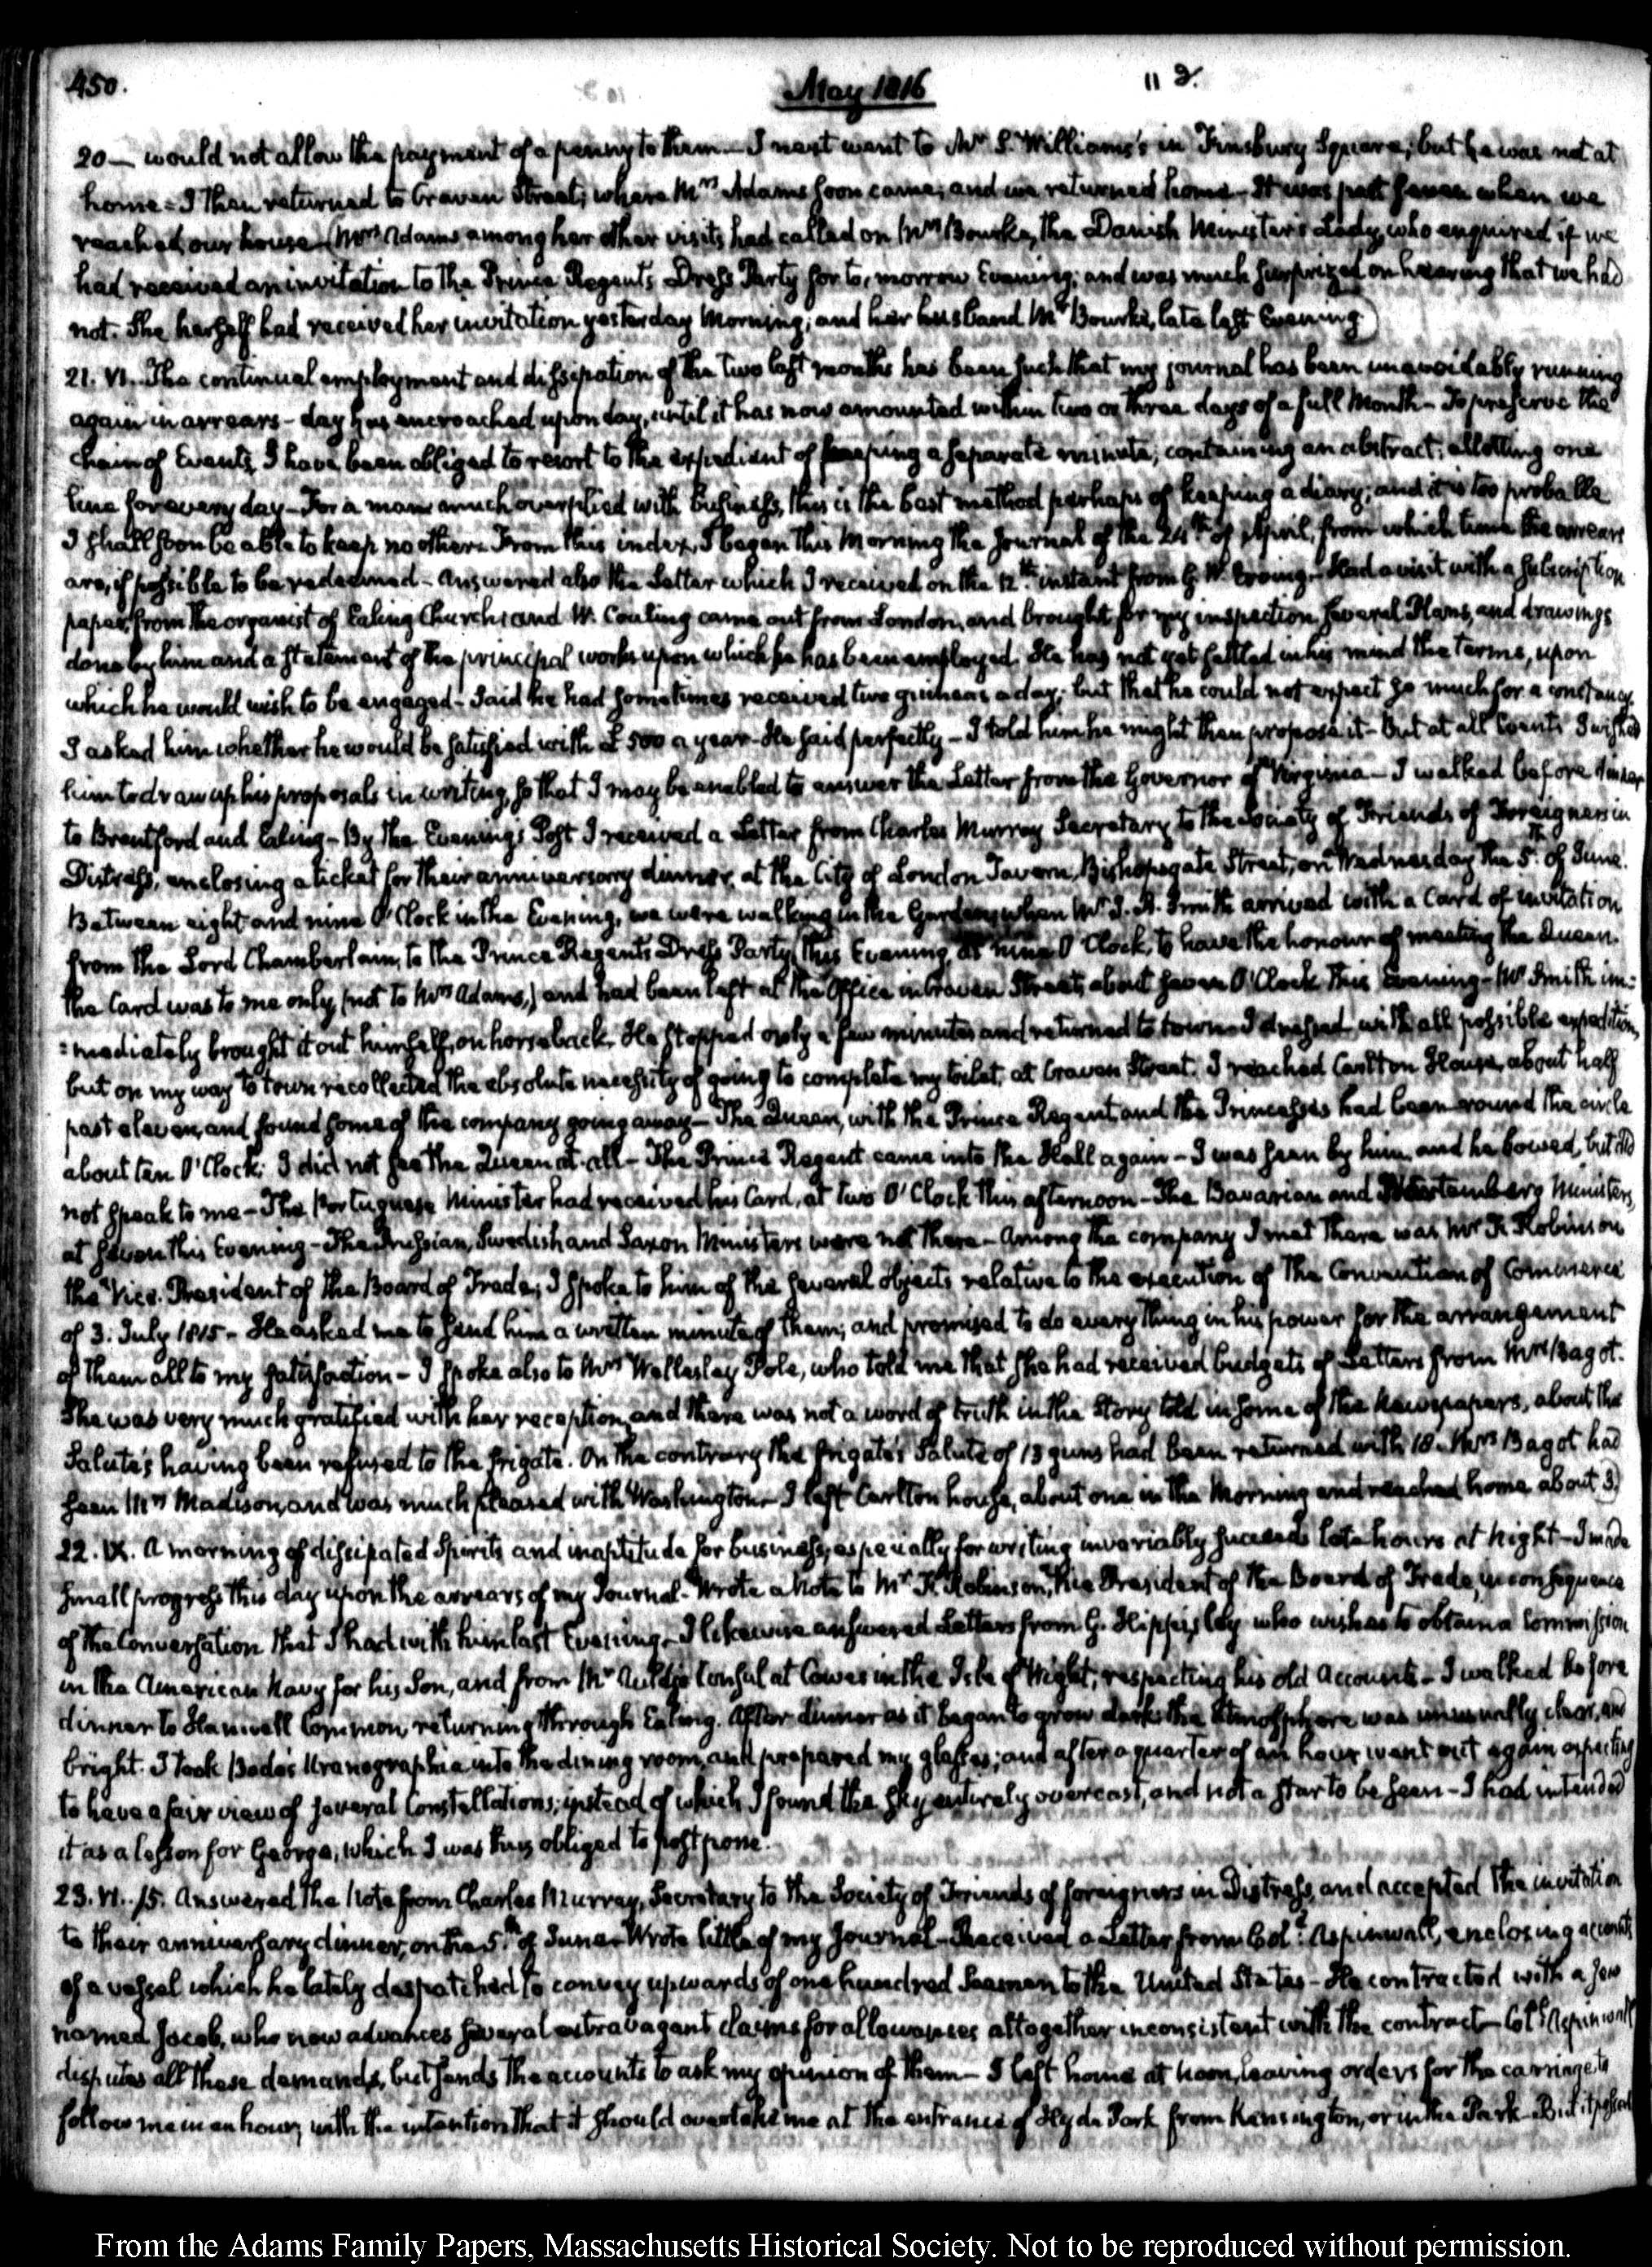 450.
May 1816
112.
20 — would not allow the payment of a penny to them — I next went to Mr. S. Williams's in Finsbury Square; but he was not at
home — I then returned to Craven Street; where Mrs. Adams soon came; and we returned home — It was past seven when we
reached our house (Mrs. Adams among her other visits had called on Mrs. Bourke, the Danish Minister's Lady, who enquired if we
had received an invitation to the Prince Regent's Dress Party for to,morrow Evening; and was much surprized on hearing that we had
not. She herself had received her invitation yesterday Morning; and her husband Mr. Bourke, late last Evening)
21. VI. The continual employment and dissipation of the two last months has been such that my journal has been unavoidably running
again in arrears — day has encroached upon day, until it has now amounted within two or three days of a full Month — To preserve the
chain of Events, I have been obliged to resort to the expedient of keeping a separate minute, containing an abstract; allotting one
line for every day — For a man much overplied with business, this is the best method perhaps of keeping a diary; and it is too probable
I shall soon be able to keep no other. From this index, I began this Morning the journal of the 24th. of April, from which time the arrears
are, if possible to be redeemed — Answered also the Letter which I received on the 12th. instant from G. W. Erving. Had a visit with a subscription
paper, from the organist of Ealing Church; and W. Couling came out from London, and brought for my inspection several Plans, and drawings
done by him and a statement of the principal works upon which he has been employed. He has not yet settled in his mind the terms, upon
which he would wish to be engaged — Said he had sometimes received two guineas a day; but that he could not expect so much for a constancy.
I asked him whether he would be satisfied with £500 a year — He said perfectly — I told him he might then propose it — But at all Events I wished
him to draw up his proposals in writing, so that I may be enabled to answer the Letter from the Governor of Virginia — I walked before dinner
to Brentford and Ealing — By the Evening's Post I received a Letter from Charles Murray Secretary to the Society of Friends of Foreigners in
Distress, enclosing a ticket for their anniversary dinner, at the City of London Tavern, Bishopsgate Street, on Wednesday the 5th. of June.
Between eight and nine O'Clock in the Evening, we were walking in the Garden, when Mr. J. A. Smith arrived with a Card of invitation
from the Lord Chamberlain, to the Prince Regent's Dress Party, this Evening at nine O'Clock, to have the honour of meeting the Queen.
The Card was to me only (not to Mrs. Adams,) and had been left at the Office in Craven Street, about seven O'Clock this Evening — Mr. Smith im=
=mediately brought it out himself, on horseback. He stopped only a few minutes and returned to town — I dressed with all possible expedition,
but on my way to town recollected the absolute necessity of going to complete my toilet, at Craven Street. I reached Carlton House, about half
past eleven, and found some of the company going away — The Queen, with the Prince Regent and the Princesses had been round the circle
about ten O'Clock; I did not see the Queen at all — The Prince Regent came into the Hall again — I was seen by him and he bowed, but did
not speak to me — The Portuguese Minister had received his Card, at two O'Clock this afternoon — The Bavarian and Wurtemberg Ministers,
at seven this Evening — The Prussian, Swedish and Saxon Ministers were not there — Among the company I met there was Mr. F. Robinson
the Vice-President of the Board of Trade; I spoke to him of the several objects relative to the execution of the Convention of Commerce
of 3. July 1815 — He asked me to send him a written minute of them; and promised to do every thing in his power for the arrangement
of them all to my satisfaction — I spoke also to Mrs. Wellesley Pole, who told me that she had received budgets of Letters from Mrs. Bagot.
She was very much gratified with her reception and there was not a word of truth in the Story told in some of the Newspapers, about the
Salute's having been refused to the frigate. On the contrary the frigate's Salute of 13 guns had been returned with 18. Mrs. Bagot had
seen Mrs. Madison, and was much pleased with Washington — I left Carlton house, about one in the Morning and reached home about 3.
22. IX. A morning of dissipated Spirits and inaptitude for business, especially for writing invariably succeeds late hours at Night — I made
small progress this day upon the arrears of my Journal — Wrote a Note to Mr. F. Robinson, Vice President of the Board of Trade, in consequence
of the Conversation that I had with him last Evening — I likewise answered Letters from G. Hippisley who wishes to obtain a Commission
in the American Navy for his Son, and from Mr. Auldjo Consul at Cowes in the Isle of Wight, respecting his old Accounts — I walked before
dinner to Hanwell Common, returning through Ealing. After dinner as it began to grow dark the atmosphere was unusually clear, and
bright. I took Bode's Uranographia into the dining room, and prepared my glasses; and after a quarter of an hour went out again expecting
to have a fair view of several Constellations; instead of which I found the sky entirely overcast, and not a star to be seen — I had intended
it as a lesson for George, which I was thus obliged to postpone.
23. VI. 15. Answered the Note from Charles Murray, Secretary to the Society of Friends of foreigners in Distress, and accepted the invitation
to their anniversary dinner, on the 5th. of June — Wrote little of my Journal — Received a Letter from Coll. Aspinwall, enclosing accounts
of a vessel which he lately despatched to convey upwards of one hundred Seamen to the United States — He contracted with a Jew
named Jacob, who now advances several extravagant claims for allowances altogether inconsistent with the contract — Coll. Aspinwall
disputes all these demands, but sends the accounts to ask my opinion of them — I left home at Noon, leaving orders for the carriage to
follow me in an hour, with the intention that it should overtake me at the entrance of Hyde Park from Kensington, or in the Park. But it passed
From the Adams Family Papers, Massachusetts Historical Society. Not to be reproduced without permission.